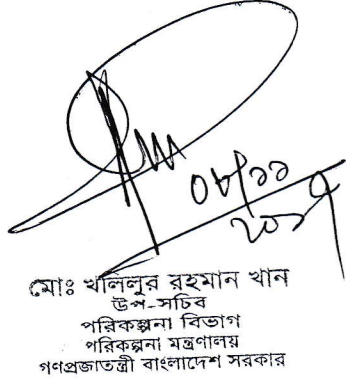 ০৮/১১
২০১৭
মোঃ খলিলুর রহমান খান
উপ-সচিব
পরিকল্পনা বিভাগ
পরিকল্পনা মন্ত্রণালয়
গণপ্রজাতন্ত্রী বাংলাদেশ সরকার